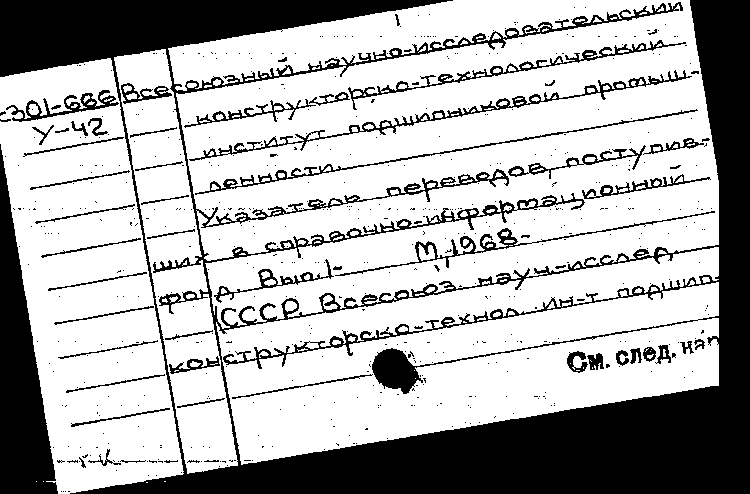 1
с301-666 Всесоюзный научно-исследовательский
У-42 конструкторско-технологический
институт подшипниковой промыш-
ленности.
Указатель переводов, поступив-
ших в справочно-информационный
фонд. Вып. 1- М., 1968-
(СССР. Всесоюз. науч.-исслед.
конструкторско-технол. ин-т подшип-
См. след. кар
т-К